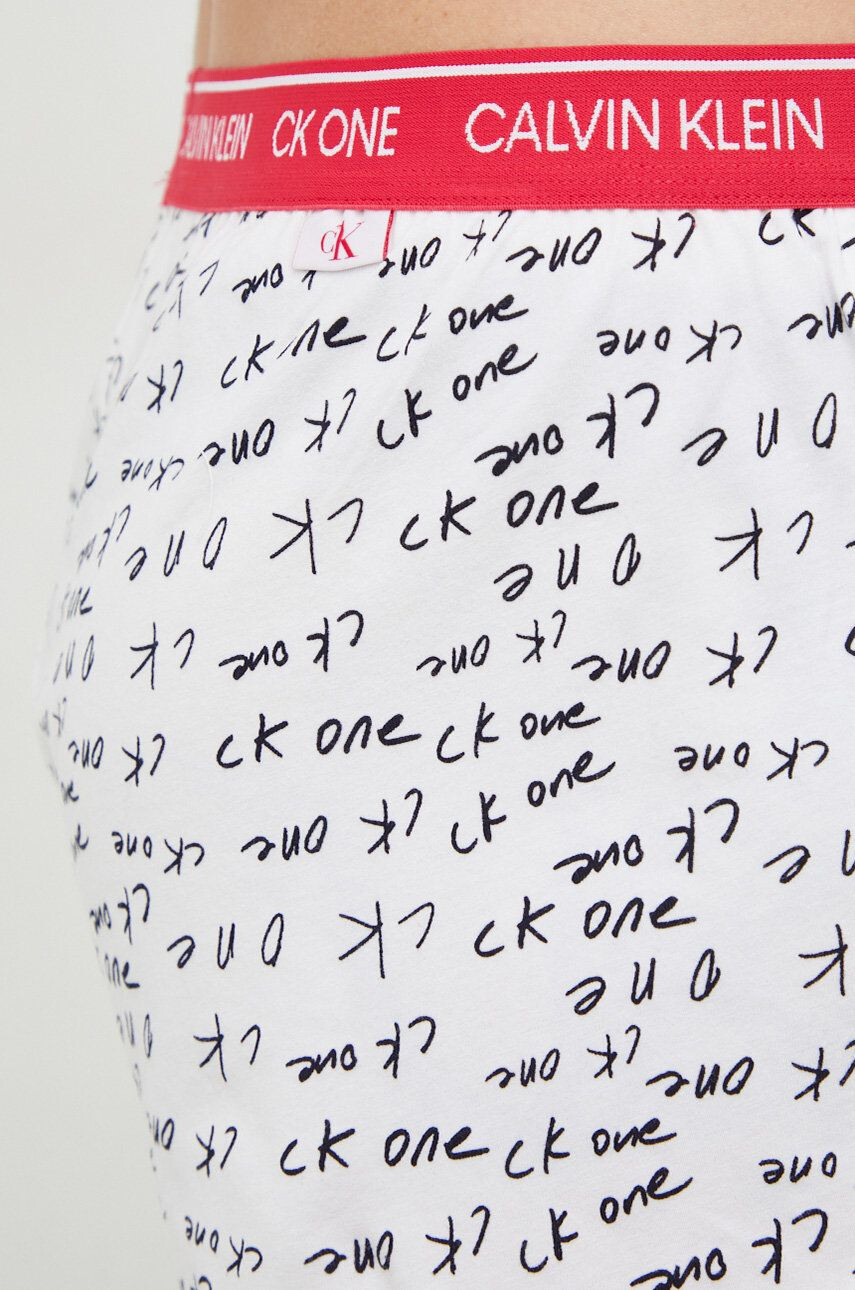 CALVIN KLEIN CK ONE CALVIN KLEIN
CK
one one CK CK
CK one CK one
one CK
CK CK one
CK one one CK
one CK one
one CK CK one
one CK
one CK one CK
one CK one CK
one CK CK one CK one
CK one
CK one one CK CK one
one CK one
CK one
one CK CK one
one CK
one CK one CK
one CK one CK
one CK CK one CK one
one
CK one one CK CK one
one CK